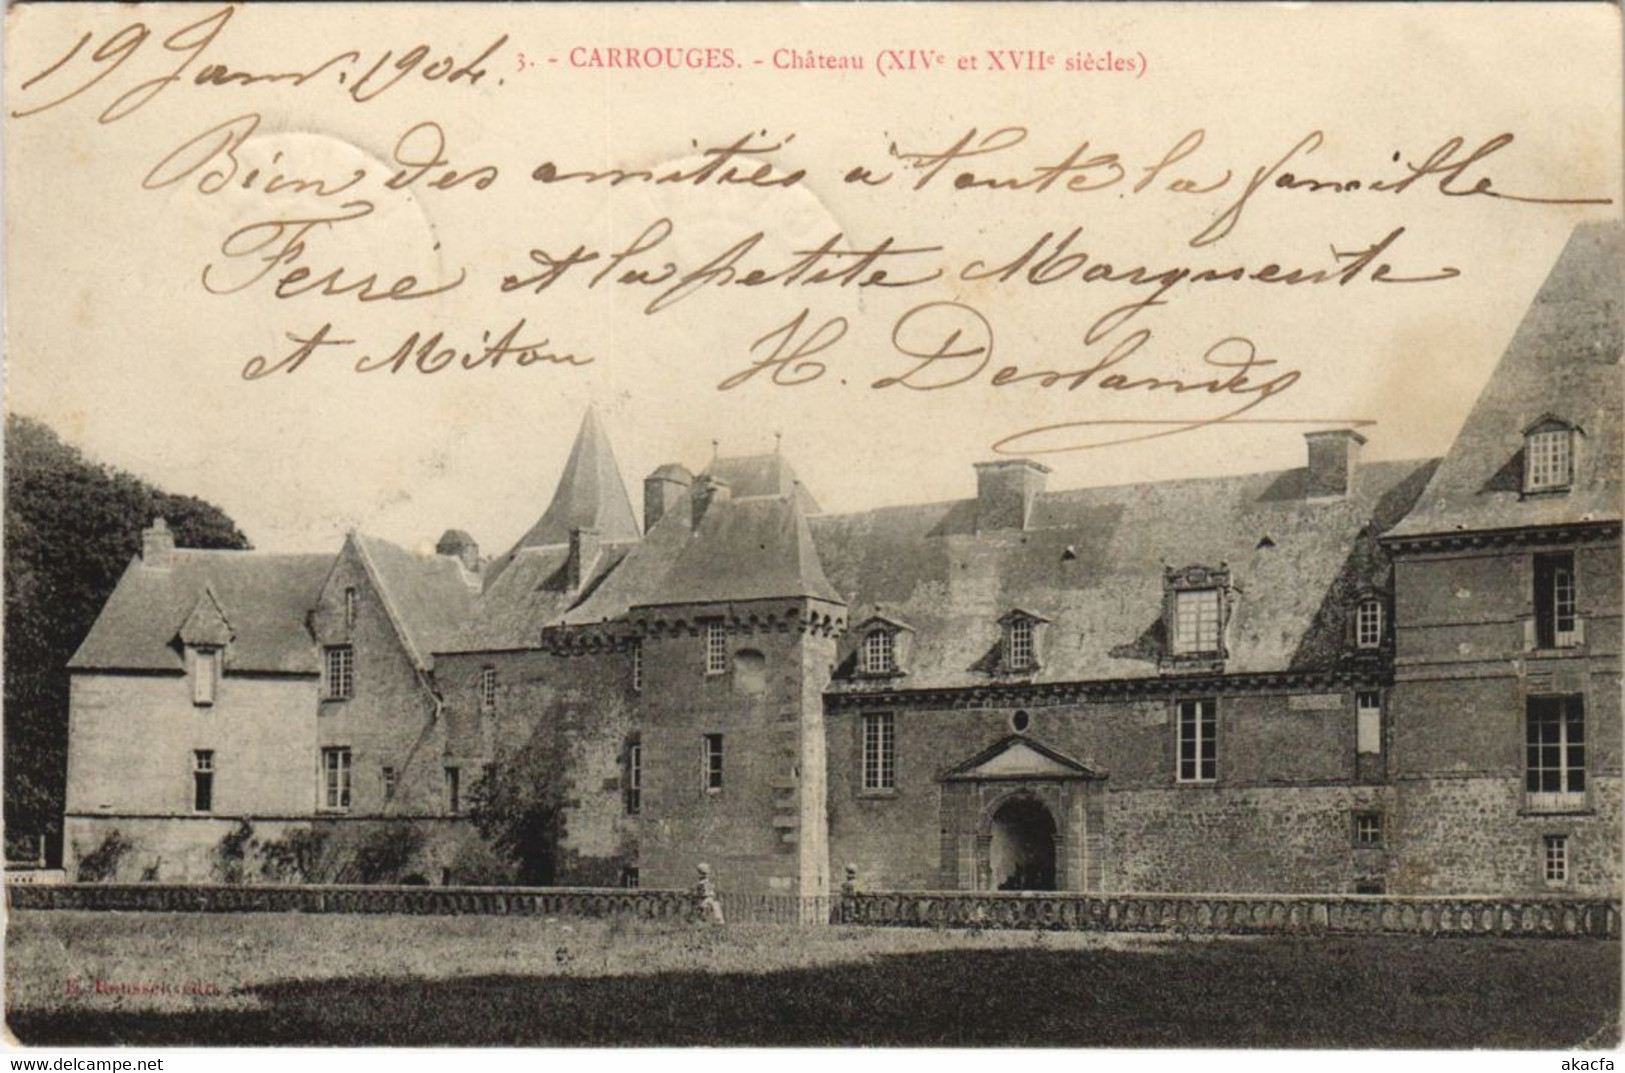 19 Janv. 1904.
3. - CARROUGES. - Château (XIVe et XVIIe siècles)
Bien des amitiés à toute la famille
Ferré et la petite Marguerite
et Miton H. Deslandes
akacfa